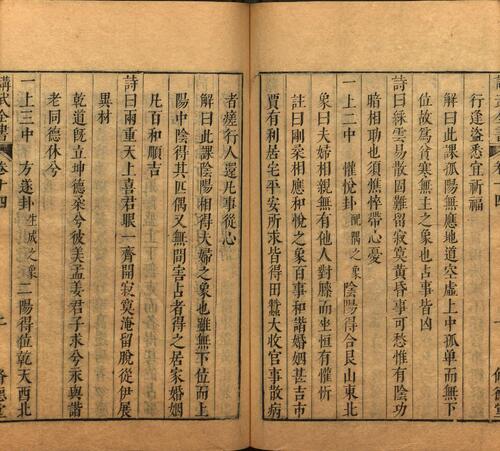 行逢盜悉宜祈福
解曰此課孤陽無應地道空虛上中孤单而無下
位故為貧寒無主之象也占事皆凶
詩曰綵雲易散固難留寂寞黄昏事可愁惟有陰功
暗相助也須憔悴帶心憂
一上二中 懽悅卦配耦之象 陰陽得合艮山東北
象曰夫婦相親無有他人對膝而坐恒有懽忻
註曰剛柔相應和悅之象百事和諧婚姻甚吉市
賈有利居宅平安所求皆得田蠶大收官事散病
者瘥行人還凡事從心
解曰此課陰陽相得夫婦之象也雖無下位而上
陽中陰得其匹偶又無間害占者得之居家婚姻
凡百和順吉
詩曰兩重天上喜君眼一齊開寂寞淹留脫從伊展
異材
一上三中 方遂卦生成之象 二陽得位乾天西北
乾道旣立坤德來兮彼美孟姜君子求兮永與諧
老同德休兮
講武全書 卷十四